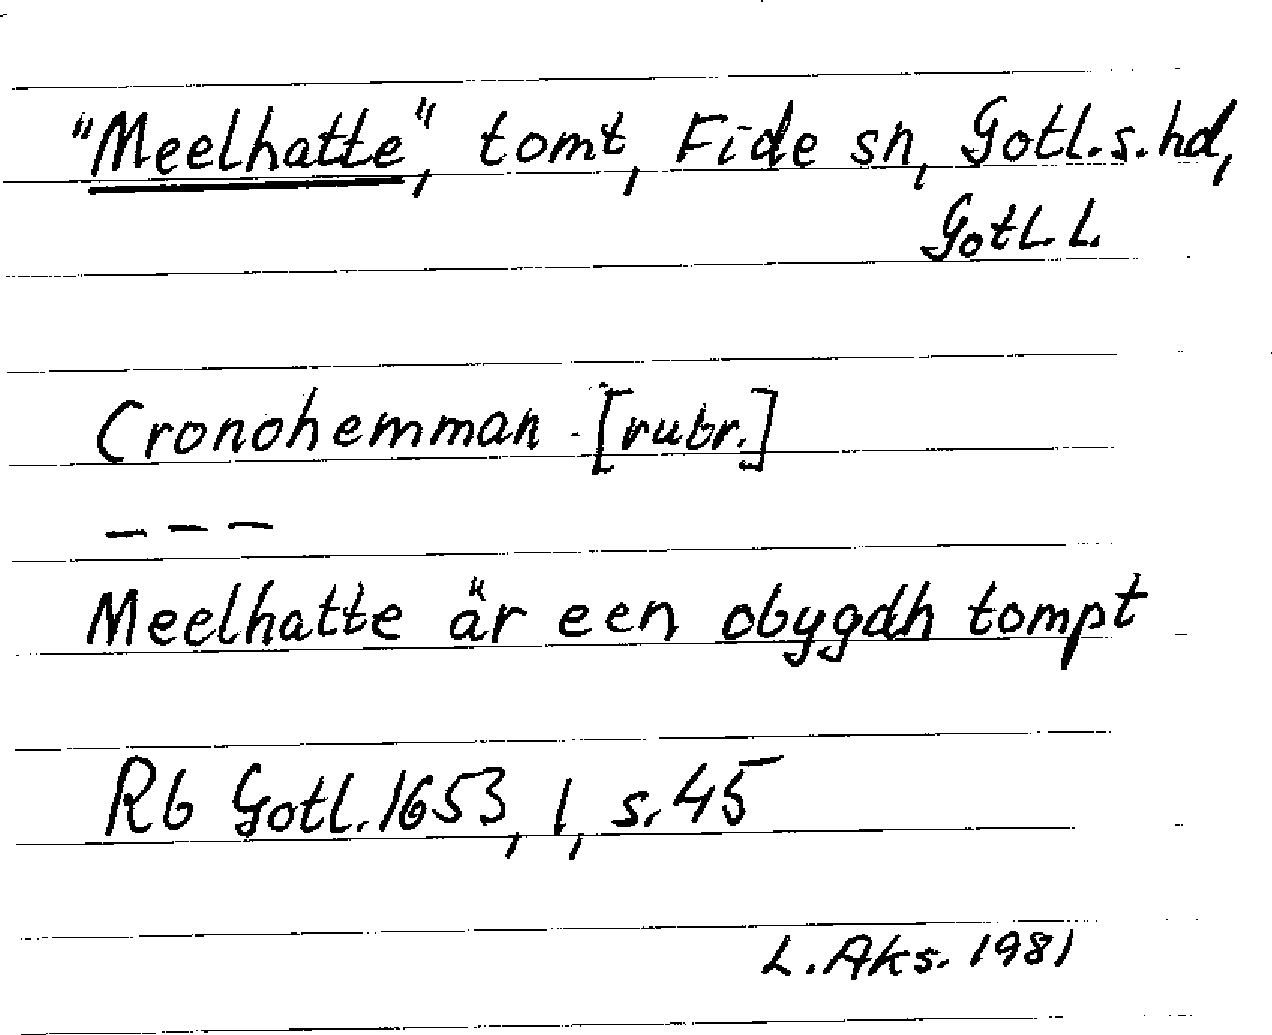 "Meelhatte", tomt, Fide sn, Gotl. s. hd,
Gotl. l.
Cronohemman [rubr.]
– – –
Meelhatte är een obygdh tompt
Rb Gotl. 1653, 1, s. 45
L. Aks. 1981